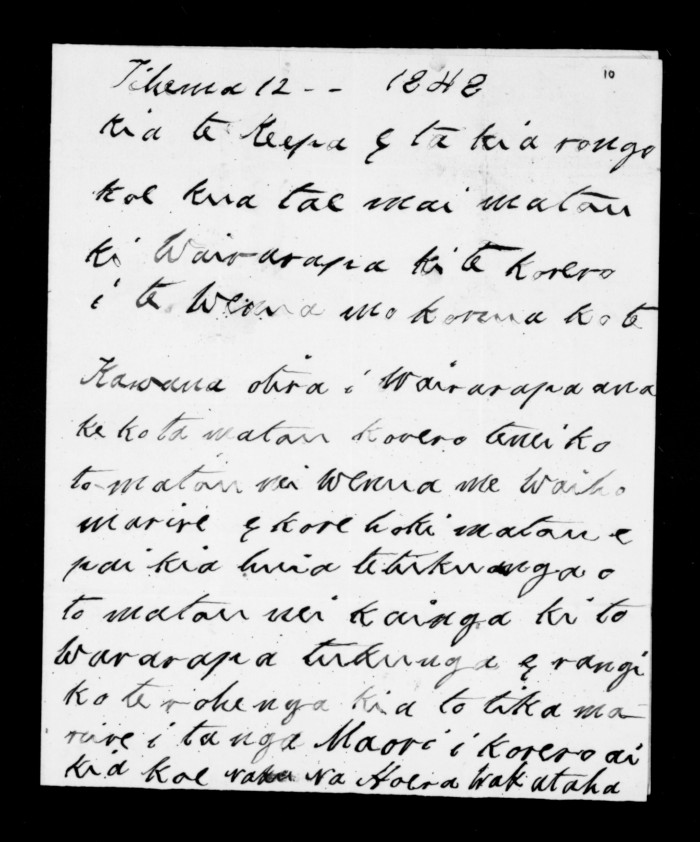 10
Tihema 12 -- 1848
kia te Keepa ę ta kia rongo
koe kua tae mai matau
ki Wairarapa ki te korero
i te Wenua mo koruua ko te
Kawana otira i Wairarapa ana
ke ko ta matau korero tenei ko
to matau nei Wenua me Waiho
marire ę kore hoki matau e
pai kia huia te tukunga o
to matau nei kainga ki to
Wararapa tukunga ę rangi
ko te rohenga kia to tika ma-
rire i ta nga Maori i korero ai
kia koe na Hoera Wakataha